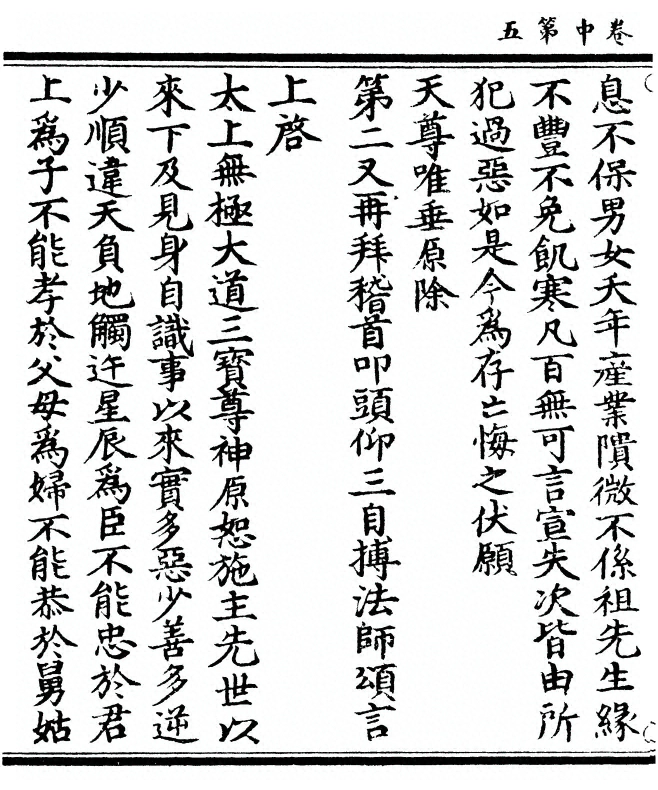 卷中第五
息不保男女夭年產業隤微不係祖先生緣
不豐不免飢寒凡百無可言宣失次皆由所
犯過惡如是今為存亡悔之伏願
天尊唯垂原除
第二又再拜稽首叩頭仰三自搏法師頌言
上啓
太上無極大道三寶尊神原恕施主先世以
來下及見身自識事以來實多惡少善多逆
少順違天負地觸迕星辰為臣不能忠於君
上為子不能孝於父母為婦不能恭於舅姑